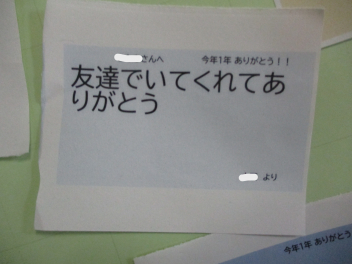 さんへ 今年1年 ありがとう！！
友達でいてくれてあ
りがとう
より
今年1年 ありがとう